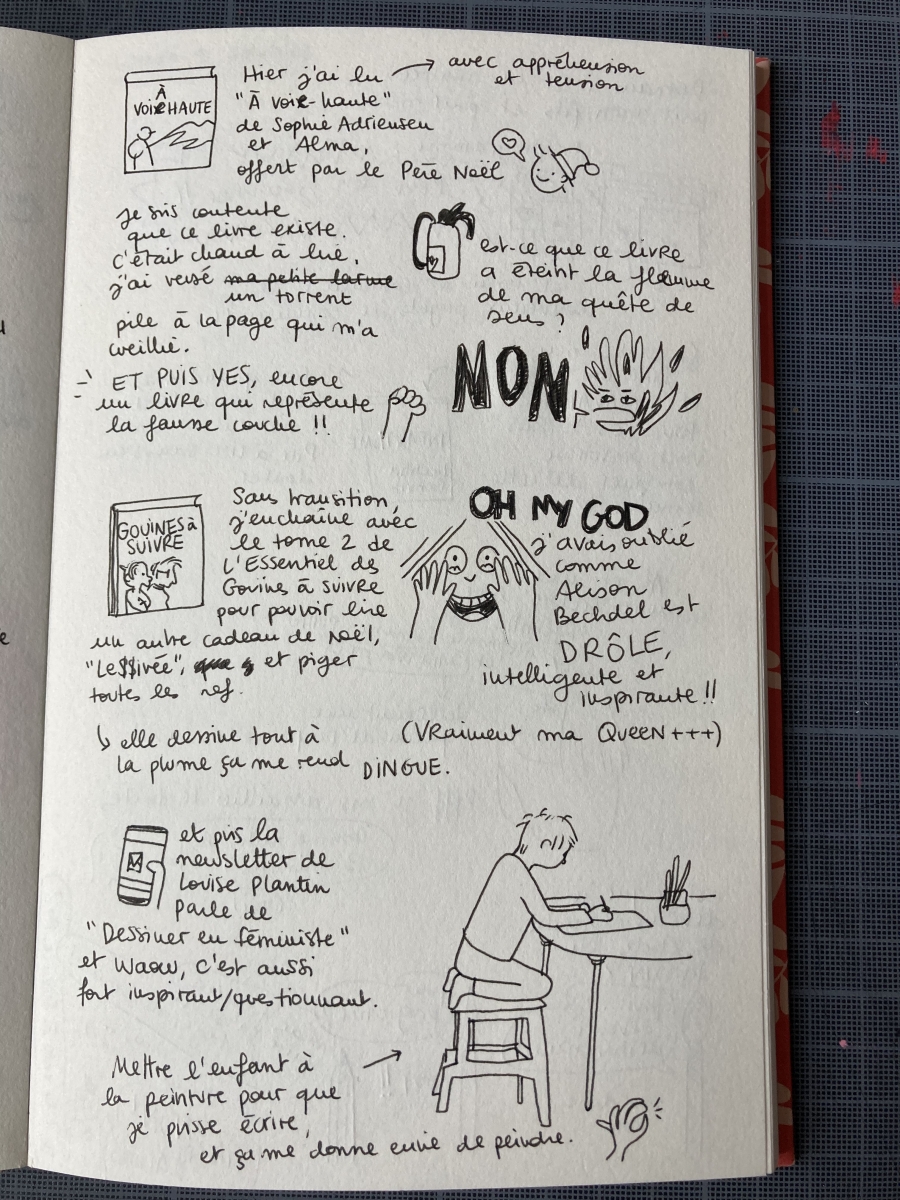 À
VOIX HAUTE
Hier j'ai lu
"À voix-haute"
de Sophie Adriensen
et Alma,
offert par le Père Noël
avec appréhension
et tension
Je suis contente
que ce livre existe.
C'était chaud à lire,
j'ai versé ma petite larme
un torrent
pile à la page qui m'a
cueillie.
est-ce que ce livre
a éteint la flamme
de ma quête de
sens ?
NON
ET PUIS YES, encore
un livre qui représente
la fausse couche !!
GOUINES à
SUIVRE
Sans transition,
j'enchaîne avec
le tome 2 de
L'Essentiel des
Gouines à suivre
pour pouvoir lire
un autre cadeau de Noël,
"Le$$ivée", et piger
toutes les ref.
OH MY GOD
j'avais oublié
comme
Alison
Bechdel est
DRÔLE,
intelligente et
inspirante !!
(Vraiment ma QUEEN +++)
elle dessine tout à
la plume ça me rend DINGUE.
M
et puis la
newsletter de
Louise Plantin
parle de
"Dessiner en féministe"
et Waow, c'est aussi
fort inspirant/questionnant.
Mettre l'enfant à
la peinture pour que
je puisse écrire,
et ça me donne envie de peindre.